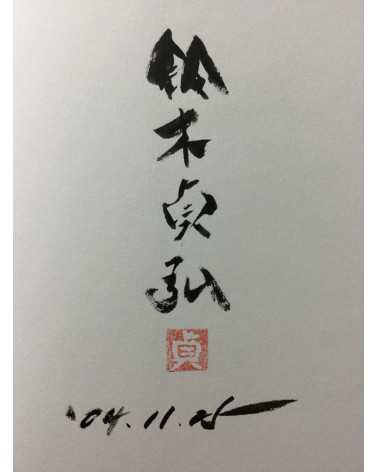 鈴木貞弘
貞
'04.11.25